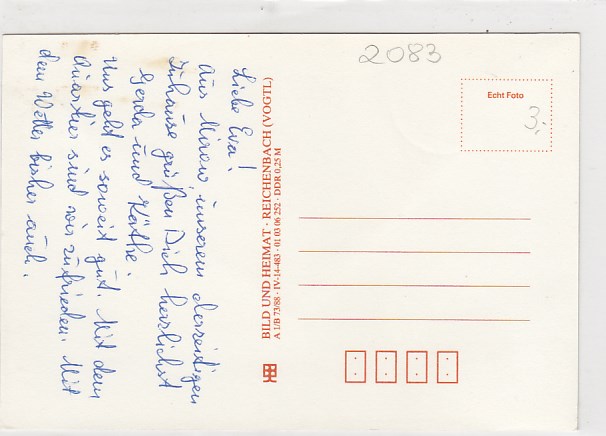 2083
Echt Foto
3,-
Liebe Eva!
Aus Mirow unserem derzeitigen
Zuhause grüßen Dich herzlichst
Gerda und Käthe.
Uns geht es soweit gut. Mit dem
Quartier sind wir zufrieden. Mit
dem Wetter bisher auch.
BILD UND HEIMAT · REICHENBACH (VOGTL)
A 1/B 73/88 · IV-14-483 · 01 03 06 252 · DDR 0,25 M